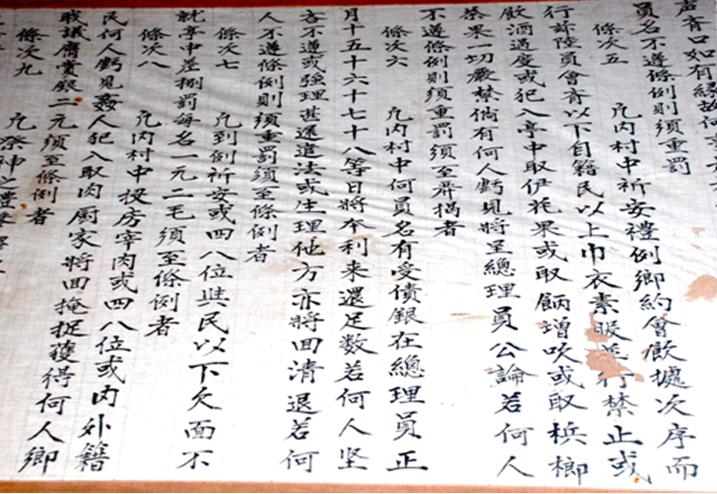 員名不遵條例則須重罰
條次五 凢内村中祈安禮例鄉約會飲據次序而
行許陸員會斉以下自籍民以上巾衣素服 行禁止或
飲酒過度或犯入亭中取伊花果或取餅增吹或取檳榔
茶果一切嚴禁倘有何人虧見將呈總理員公論若何人
不遵條例則須重罰須至 揭者
條次六 凢内村中何員名有受債銀在總理員正
月十五十六十七十八等日將本利來還足數若何人坚
吝不遵或強理甚逓違法或生理他方亦將回清退若何
人不遵條例則須重罰須至條例者
條次七 凢到例祈安或四八位與民以下欠面不
就亭中差捌罰每名一元二毛須至條例者
條次八 凢内村中投房宰肉或四八位或内外籍
民何人虧見姦人犯入取肉厨家將回掩捉獲得何人鄉
職議 賞銀二元須至條例者
條次九 凢祭神之禮